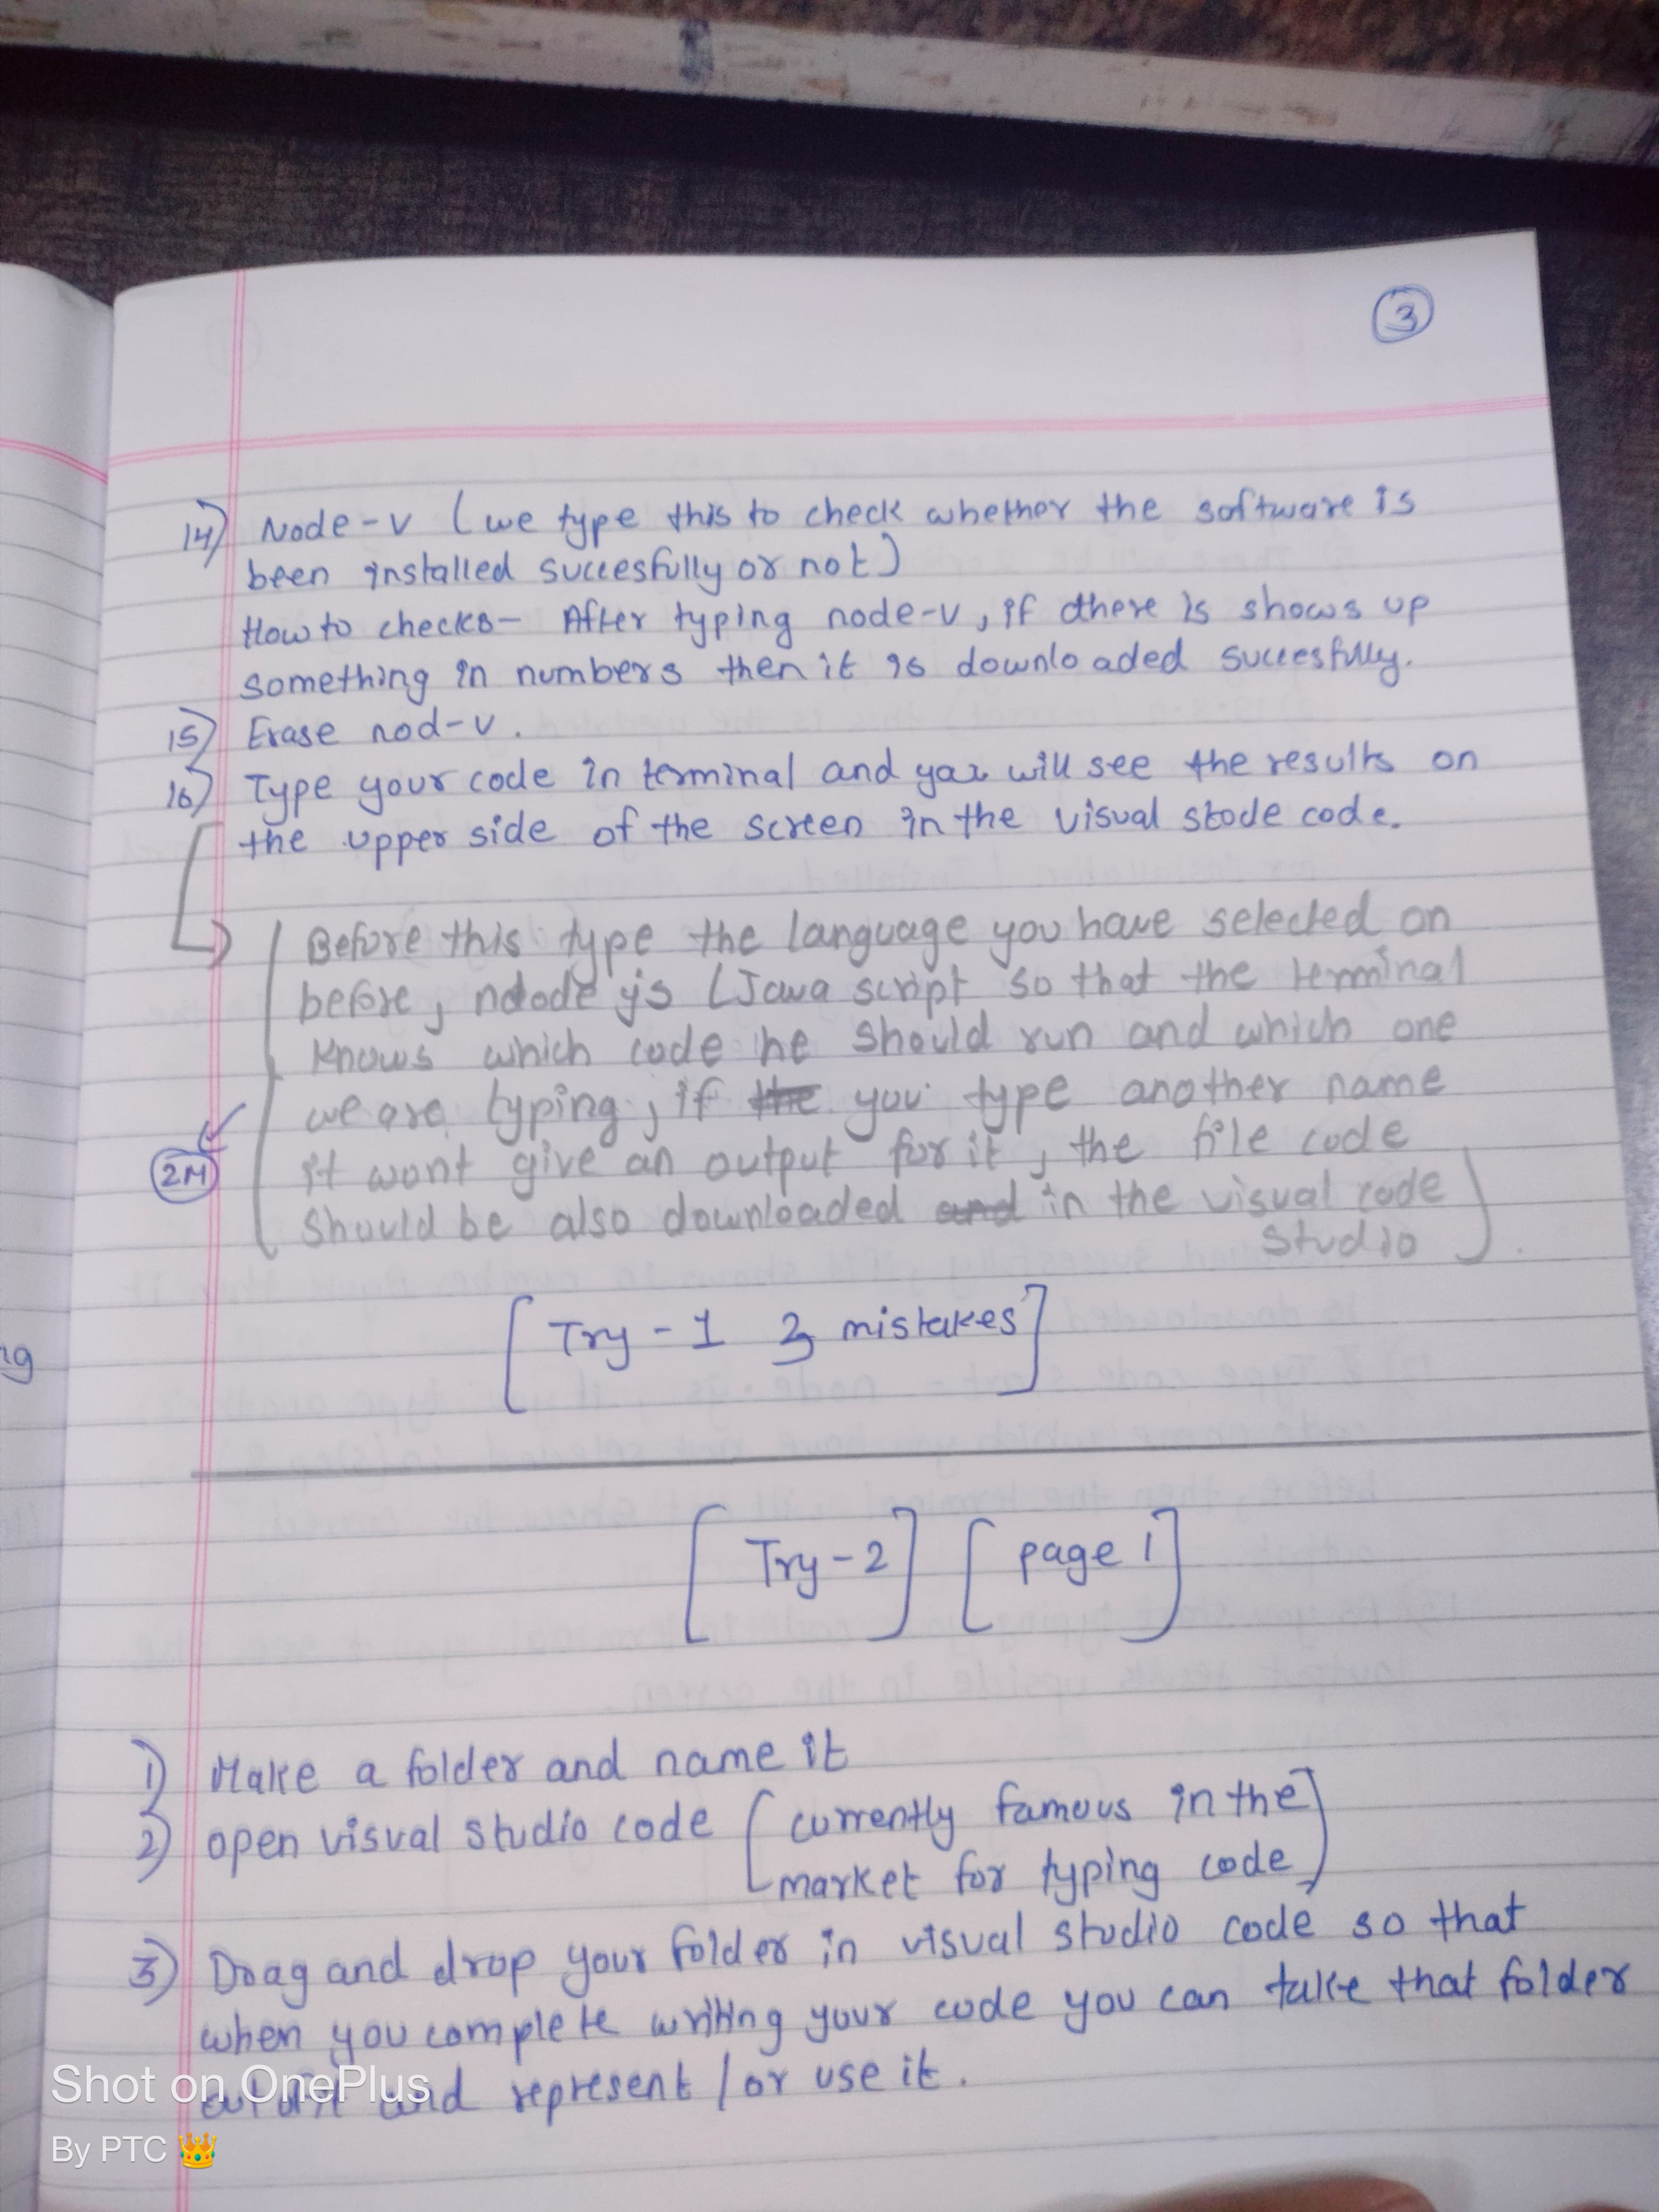 3
14) Node-v (we type this to check whether the software is
been installed succesfully or not)
How to check:- After typing node-v, if there is shows up
something in numbers then it is downloaded succesfully.
15) Erase nod-v.
16) Type your code in terminal and you will see the results on
the upper side of the screen in the visual stode code.
(Before this type the language you have selected on
before, node js (Java script so that the terminal
knows which code he should run and which one
we are typing, if the you type another name
it wont give an output for it, the file code
2M
should be also downloaded and in the visual code
studio)
[Try-1 3 mistakes]
ng
[Try-2] [page 1]
1) Make a folder and name it
2) open visual studio code [currently famous in the
market for typing code]
3) Drag and drop your folder in visual studio code so that
when you complete writing your code you can take that folder
and represent / or use it.
Shot on OnePlus
By PTC 👑